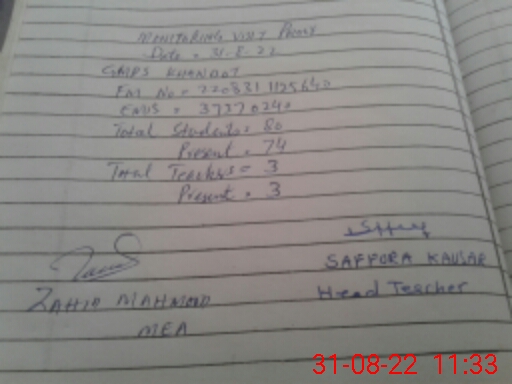 MONITORING VISIT PROXY
Date = 31-8-22
GMPS KHANDOT
EMIS = 37370240
Total Students = 80
Present = 74
Total Teachers = 3
Present = 3
SAFFORA KAUSAR
ZAHID MAHMOOD
Head Teacher
MEA
31-08-22 11:33